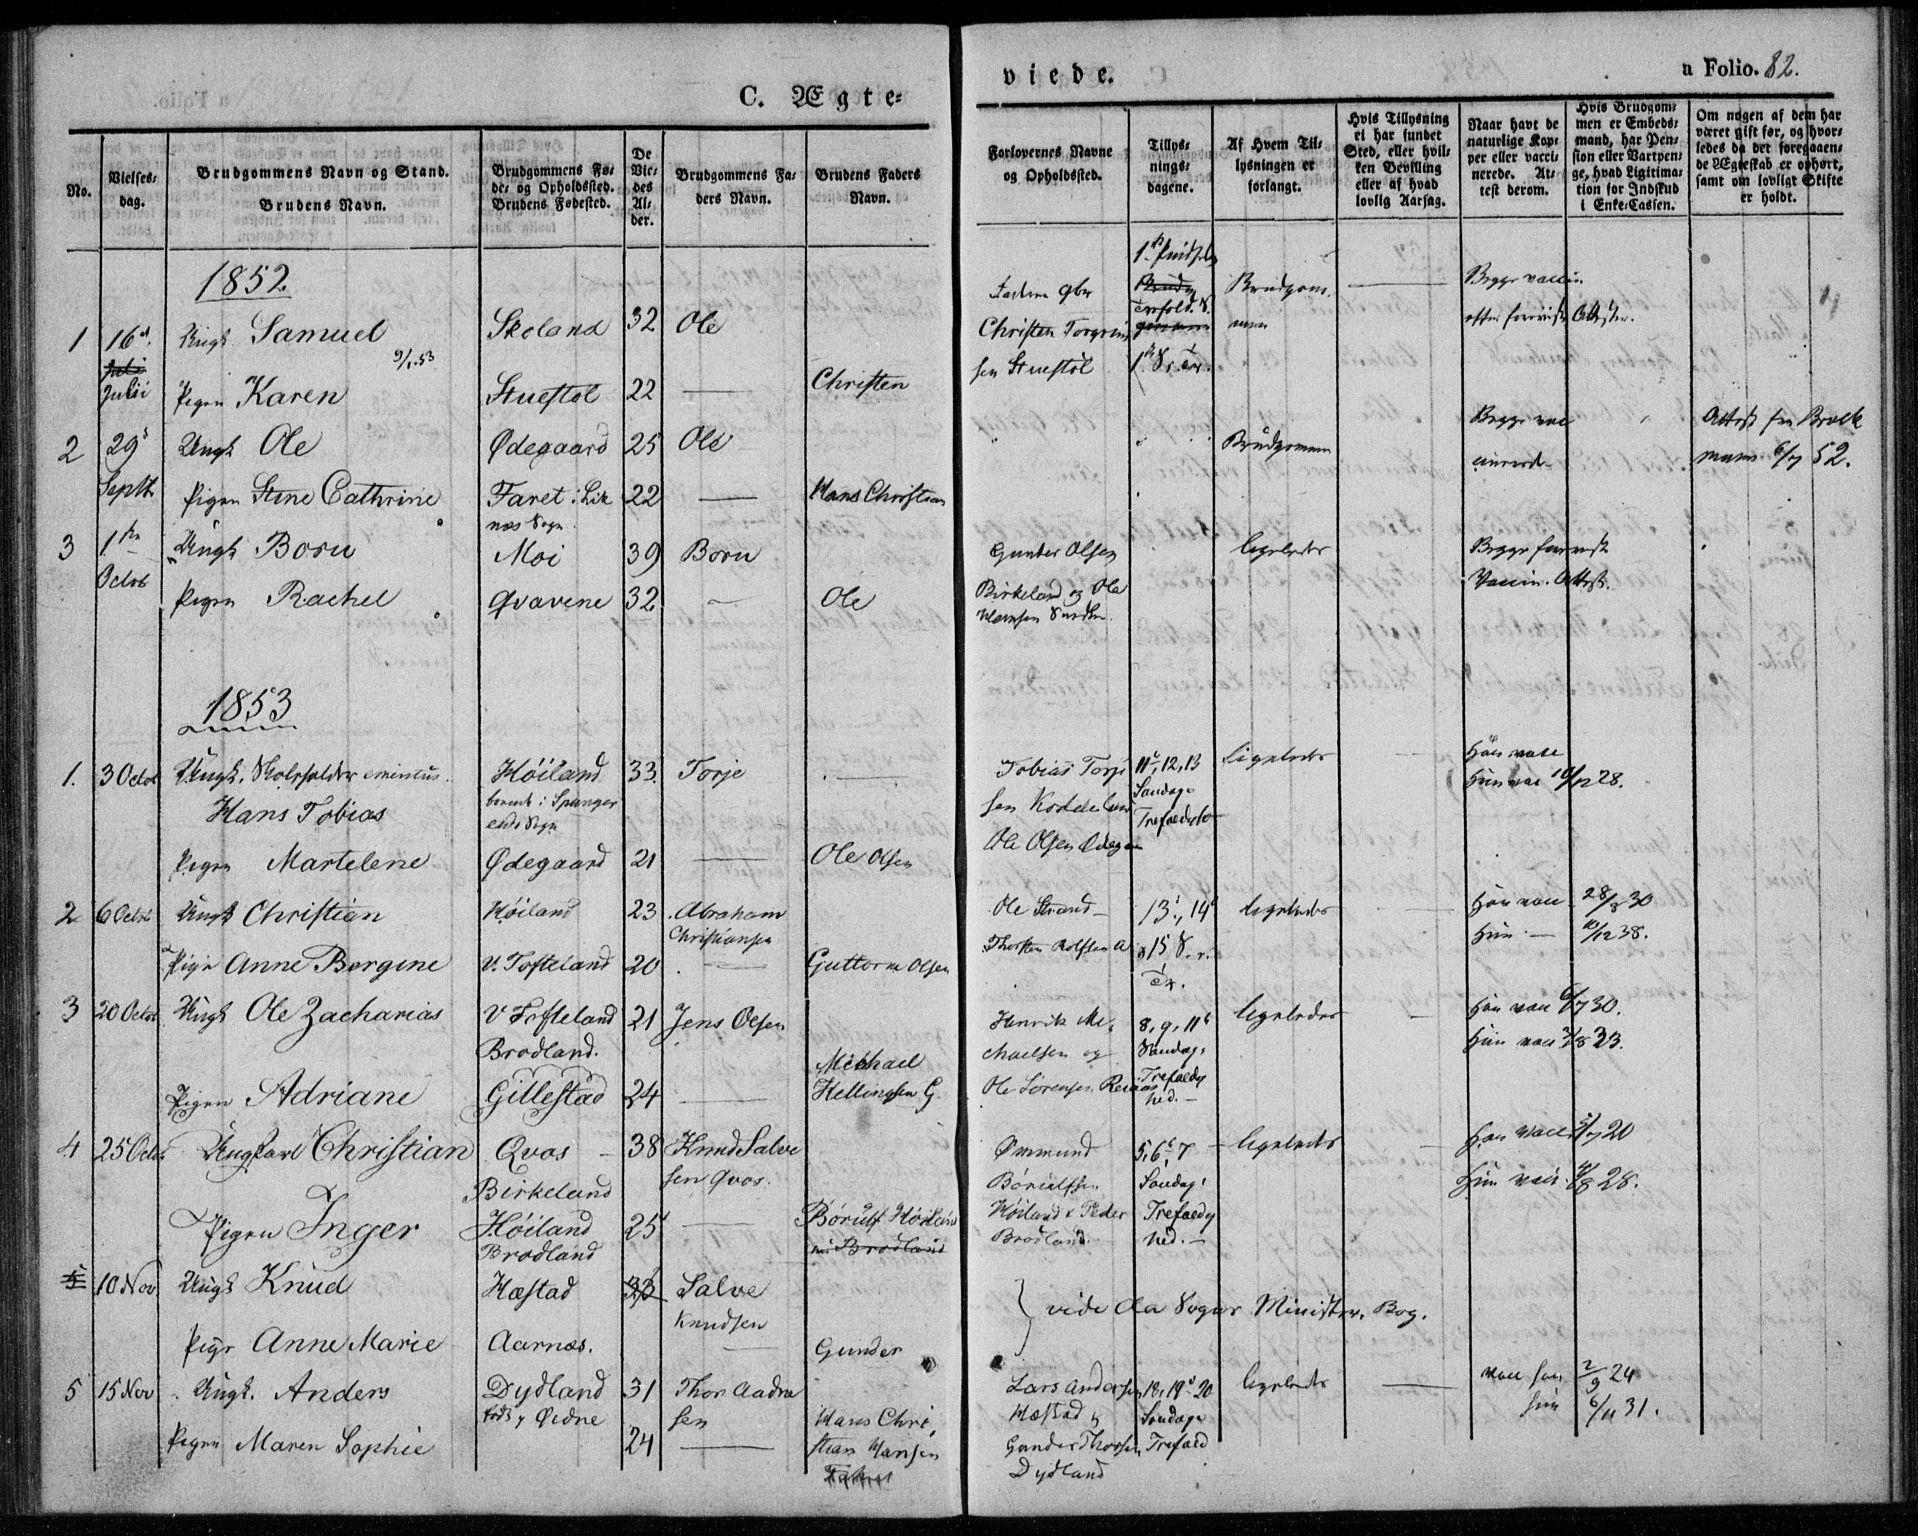 C. Ægte=
viede.
a Folio. 82.
No.
Vielses=
dag.
Brudgommens Navn og Stand.
Brudens Navn.
Brudgommens Fø=
de= og Opholdssted.
Brudens Fødested.
De
Vie=
des
Al=
der.
Brudgommens Fa=
ders Navn.
Brudens Faders
Navn.
Forlovernes Navne
og Opholdssted.
Tillys=
nings=
dagene.
Af Hvem Til=
lysningen er
forlangt.
Hvis Tillysning
ei har fundet
Sted, eller hvil=
ken Bevilling
eller af hvad
lovlig Aarsag.
Naar havt de
naturlige Kop=
per eller vacci=
nerede. At=
test derom.
Hvis Brudgom=
men er Embeds=
mand, har Pen=
sion eller Vartpen=
ge, hvad Legitima=
tion for Indskud
i Enke=Cassen.
Om nogen af dem har
været gift før, og hvor=
ledes da det foregaaen=
de Ægteskab er ophørt,
samt om lovligt Skifte
er holdt.
1852.
1 16 Julii Ungk Samuel Skoland 32 Ole Brudgom
men
Christen
9/1 53
Pigen Karen Stuestøl 22 — Christen
2 29 Septb Ungk Ole Ødegaard 25 Ole Brudgommen Begge vac
Attest fra
6/7 52.
Pigen Stine Cathrine Faret i Lik
nes Sogn 22 — Hans Christian
3 1 Octob Ungk Boru Moi 39 Boru Gunder Olsen
Birkeland og Ole ligeledes Begge
Vaccin. Attest.
Pigen Rachel Qvavene 32 — Ole
1853
1. 3 Octob Ungk. Skoleholder
Hans Tobias Høiland 33 Torje Tobias Torje
sen 11, 12, 13
Søndage
Trefoldh ligeledes Han vacc
Hun vac 10/12 28.
Ole Olsen Ødegaa
Pigen Martelene Ødegaard 21 — Ole Olsen
2 6 Octob Ungk Christian Høiland 23 Abraham
Christiansen Ole Strand 13, 14 ligeledes — Han vacc 28/8 30
Hun — 10/12 38.
Pige Anne Bergine V. Tofteland 20 — Guttorm Olsen
3 20 Octob Ungk Ole Zacharias V Tofteland
Brodland. 21 Jens Olsen Henrik Mi
chaelsen og 8, 9, 11
Søndag ligeledes — Han vacc 6/7 30.
Hun vacc 3/8 23.
Pigen Adriane Gillestad 24 — Michael
Hellingsen G. Ole Sørensen Trefoldig
hed. —
4 25 Octb Ungkarl Christian Qvos
Birkeland 38 Knud Salve
sen Qvos. Ommund
Børiulfsen
Høiland & Peder
Brodland 5, 6, 7
Søndag
Trefoldig
hed. — ligeledes — Han vacc 20
Hun vacc 28.
Pigen Inger Høiland
Brodland 25 — Børiulf Høiland
Brodland
5 10 Nov Ungk Knud Hæstad 33 Salve
Knudsen vide Aa Sogns Minister. Bog.
Pige Anne Marie Aarnes. — Gunder
5 15 Nov Ungk. Anders Dydland
Øidne 31 Thor Aadne
sen Lars Andersen
Hæstad &
Gunder Thorsen
Dydland 18, 19, 20
Søndage
Trefold ligeledes — vacc han 2/9 24
hun 6/11 31.
Pigen Maren Sophie 24 — Hans Chri
stian Hansen